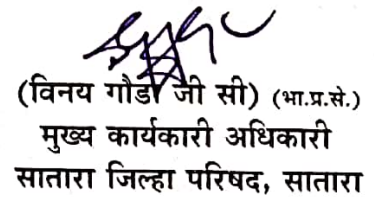 (विनय गौडा जी सी) (भा.प्र.से.)
मुख्य कार्यकारी अधिकारी
सातारा जिल्हा परिषद, सातारा